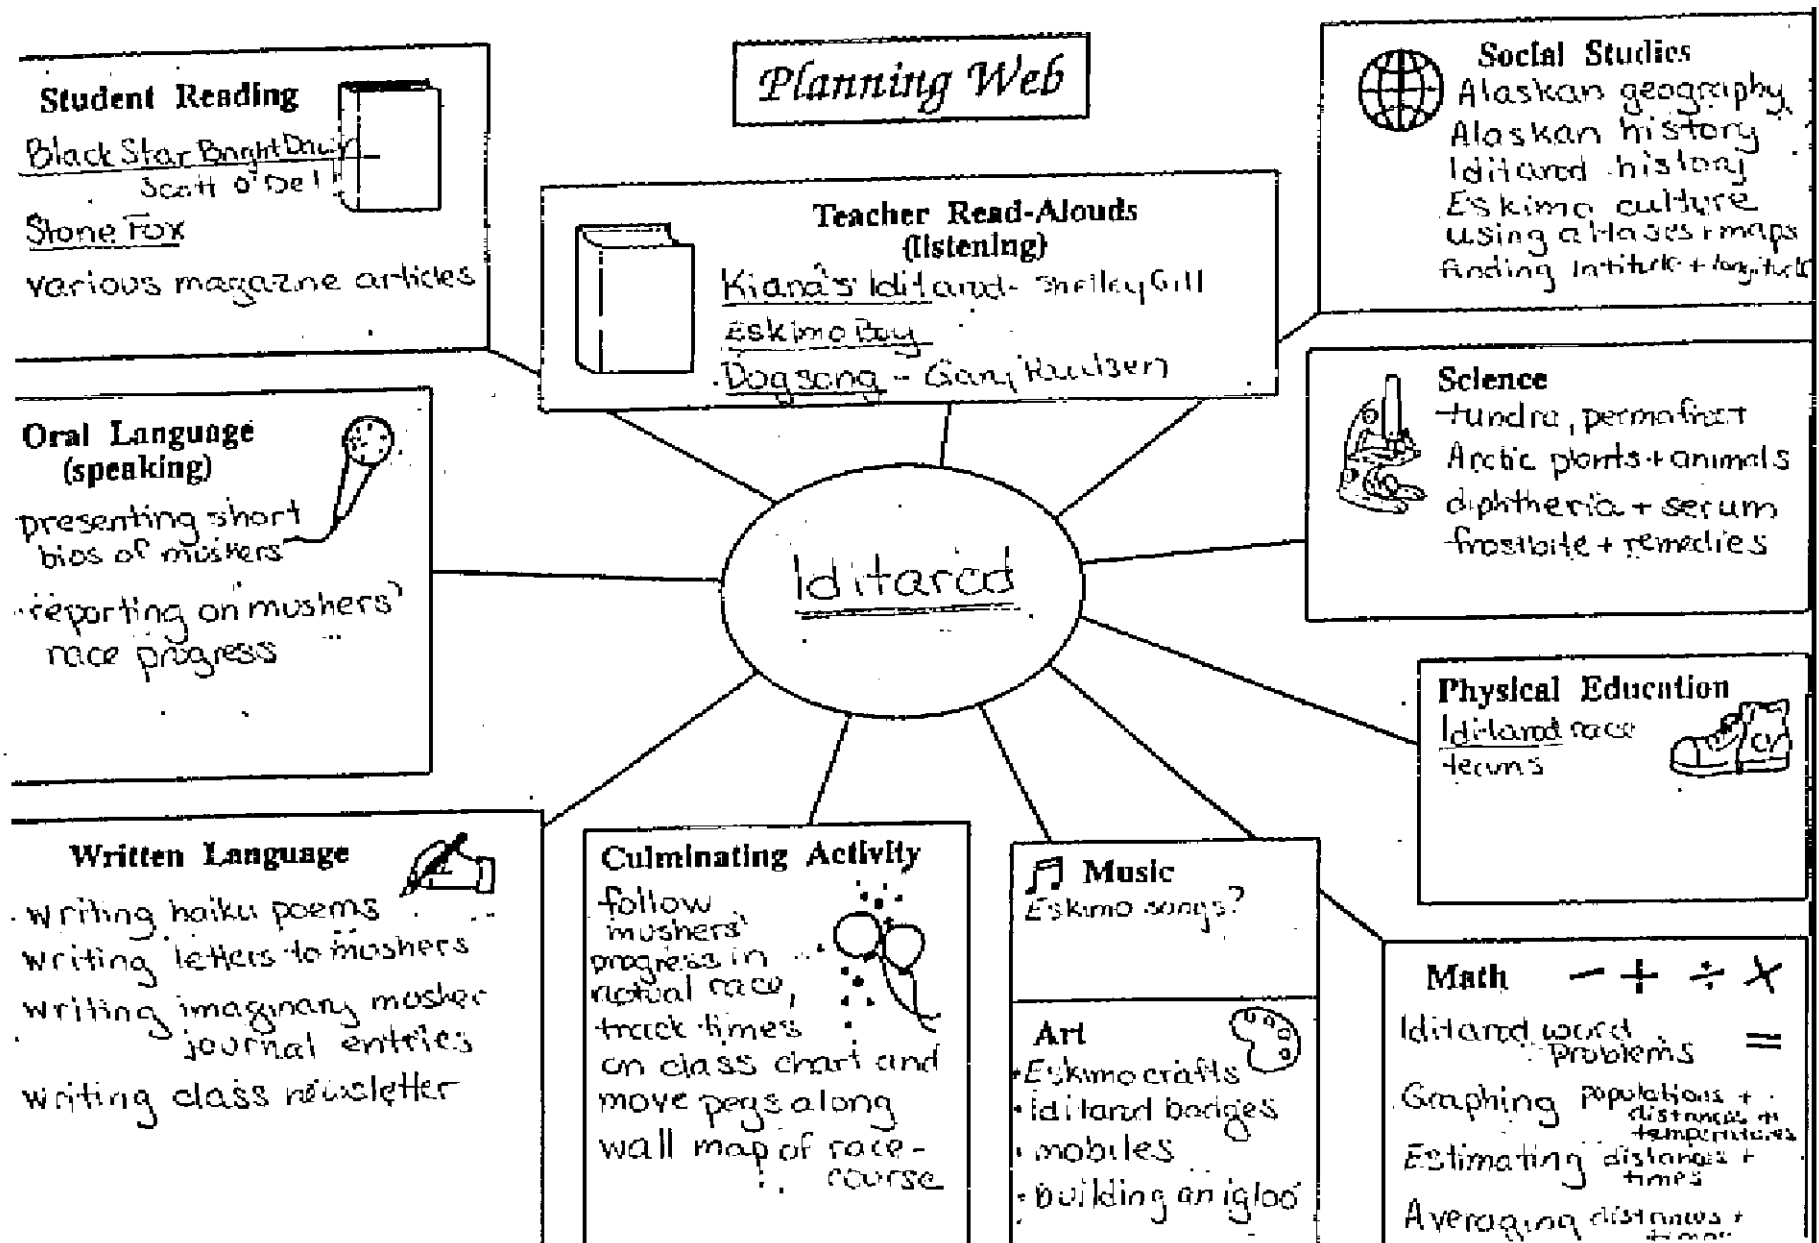 Planning Web
Student Reading
Black Star Bright Dawn
Scott O'Dell
Stone Fox
various magazine articles
Teacher Read-Alouds
(listening)
Kiana's Iditarod - Shelley Gill
Eskimo Boy
Dogsong - Gary Paulsen
Social Studies
Alaskan geography
Alaskan history
Iditarod history
Eskimo culture
using atlases + maps
finding latitude + longitude
Oral Language
(speaking)
presenting short
bios of mushers
reporting on mushers'
race progress
Iditarod
Science
tundra, permafrost
Arctic plants + animals
diphtheria + serum
frostbite + remedies
Physical Education
Iditarod race
teams
Written Language
writing haiku poems
writing letters to mushers
writing imaginary musher
journal entries
writing class newsletter
Culminating Activity
follow
mushers'
progress in
actual race,
track times
on class chart and
move pegs along
wall map of race-
course
Music
Eskimo songs?
Art
• Eskimo crafts
• iditarod badges
• mobiles
• building an igloo
Math − + ÷ ×
=
Iditarod word
problems
Graphing populations +
distances +
temperatures
Estimating distances +
times
Averaging distances +
times